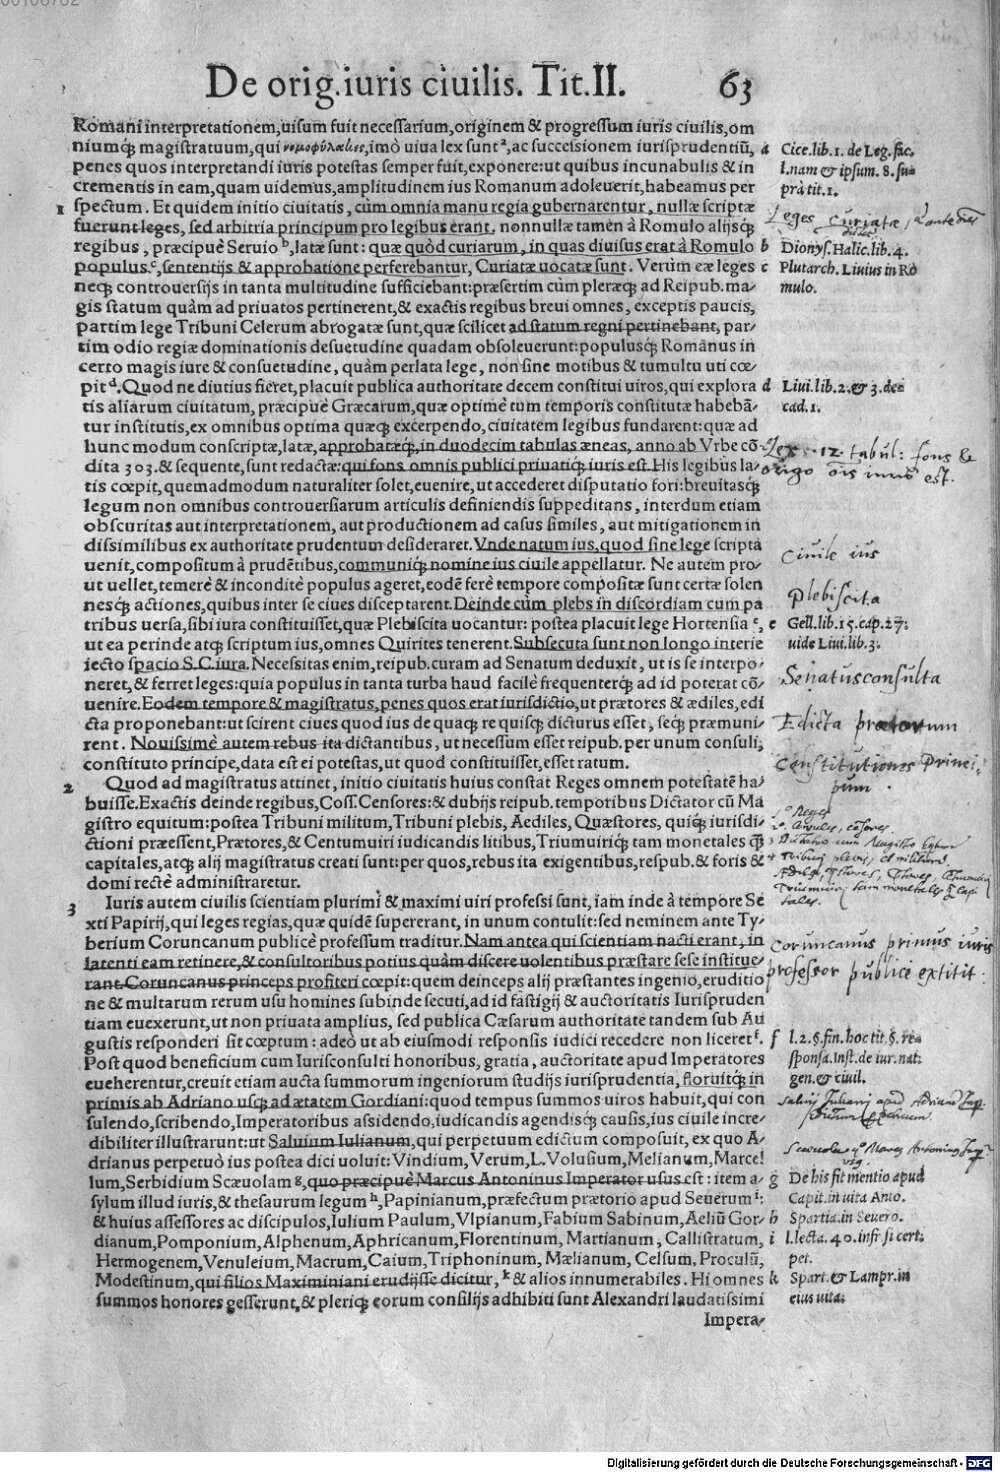 De orig.iuris ciuilis. Tit.II. 63
Romani interpretationem,uisum fuit necessarium,originem & progressum iuris ciuilis,om
niumq́ magistratuum,qui νομοφύλακες,imò uiua lex sunt a,ac successionem iurisprudentiũ,
penes quos interpretandi iuris potestas semper fuit,exponere:ut quibus incunabulis & in
crementis in eam,quam uidemus,amplitudinem ius Romanum adoleuerit,habeamus per
1 spectum. Et quidem initio ciuitatis, cùm omnia manu regia gubernarentur, nullæ scriptæ
fuerunt leges, sed arbitria principum pro legibus erant, nonnullæ tamen à Romulo alijsq́
regibus, præcipuè Seruio b,latæ sunt: quæ quòd curiarum, in quas diuisus erat à Romulo
populus c,sententijs & approbatione perferebantur, Curiatæ uocatæ sunt. Verùm eæ leges
neq́ controuersijs in tanta multitudine sufficiebant:præsertim cùm pleræq́ ad Reipub.ma-
gis statum quàm ad priuatos pertinerent,& exactis regibus breui omnes, exceptis paucis,
partim lege Tribuni Celerum abrogatæ sunt,quæ scilicet ad statum regni pertinebant, par-
tim odio regiæ dominationis desuetudine quadam obsoleuerunt:populusq́ Romanus in
certo magis iure & consuetudine, quàm perlata lege, non sine motibus & tumultu uti cœ-
pit d.Quod ne diutius fieret,placuit publica authoritate decem constitui uiros,qui explora
tis aliarum ciuitatum, præcipuè Græcarum,quæ optimè tum temporis constitutæ habebã-
tur institutis,ex omnibus optima quæq́ excerpendo,ciuitatem legibus fundarent:quæ ad
hunc modum conscriptæ,latæ,approbatæq́,in duodecim tabulas æneas, anno ab Vrbe cõ-
dita 303.& sequente,sunt redactæ:qui fons omnis publici priuatiq́ iuris est.His legibus la-
tis cœpit,quemadmodum naturaliter solet,euenire,ut accederet disputatio fori:breuitasq́
legum non omnibus controuersiarum articulis definiendis suppeditans, interdum etiam
obscuritas aut interpretationem, aut productionem ad casus similes, aut mitigationem in
dissimilibus ex authoritate prudentum desideraret.Vnde natum ius,quod sine lege scriptà
uenit,compositum à prudẽtibus,communiq́ nomine ius ciuile appellatur. Ne autem pro-
ut uellet,temerè & inconditè populus ageret,eodẽ ferè tempore compositæ sunt certæ solen
nesq́ actiones,quibus inter se ciues disceptarent.Deinde cùm plebs in discordiam cum pa
tribus uersa,sibi iura constituisset,quæ Plebiscita uocantur: postea placuit lege Hortensia e,
ut ea perinde atq́ scriptum ius,omnes Quirites tenerent.Subsecuta sunt non longo interie
iecto spacio S.C.iura. Necessitas enim,reipub.curam ad Senatum deduxit,ut is se interpo-
neret,& ferret leges:quia populus in tanta turba haud facilè frequenterq́ ad id poterat cõ-
uenire.Eodem tempore & magistratus,penes quos erat iurisdictio,ut prætores & ædiles,edi
cta proponebant:ut scirent ciues quod ius de quaq́ re quisq́ dicturus esset, seq́ præmuni-
rent. Nouissimè autem rebus ita dictantibus, ut necessum esset reipub.per unum consuli,
constituto principe,data est ei potestas,ut quod constituisset,esset ratum.
2 Quod ad magistratus attinet, initio ciuitatis huius constat Reges omnem potestatẽ ha-
buisse.Exactis deinde regibus,Coss.Censores:& dubijs reipub.temporibus Dictator cũ Ma
gistro equitum:postea Tribuni militum,Tribuni plebis, Aediles, Quæstores, quiq́ iurisdi-
ctioni præessent,Prætores,& Centumuiri iudicandis litibus,Triumuiriq́ tam monetales q̃
capitales,atq́ alij magistratus creati sunt:per quos,rebus ita exigentibus,respub.& foris &
domi rectè administraretur.
3 Iuris autem ciuilis scientiam plurimi & maximi uiri professi sunt,iam inde à tempore Se
xti Papirij,qui leges regias,quæ quidẽ supererant, in unum contulit:sed neminem ante Ty-
berium Coruncanum publicè professum traditur.Nam antea qui scientiam nacti erant, in
latenti eam retinere,& consultoribus potius quàm discere uolentibus præstare sese institue-
rant.Coruncanus princeps profiteri cœpit:quem deinceps alij præstantes ingenio,eruditio
ne & multarum rerum usu homines subinde secuti,ad id fastigij & auctoritatis Iurispruden
tiam euexerunt,ut non priuata amplius, sed publica Cæsarum authoritate tandem sub Au
gustis responderi sit cœptum: adeò ut ab eiusmodi responsis iudici recedere non liceret f.
Post quod beneficium cum Iurisconsulti honoribus, gratia, auctoritate apud Imperatores
eueherentur,creuit etiam aucta summorum ingeniorum studijs iurisprudentia,floruitq́ in
primis ab Adriano usq́ ad ætatem Gordiani:quod tempus summos uiros habuit,qui con
sulendo,scribendo,Imperatoribus assidendo,iudicandis agendisq́ causis,ius ciuile incre-
dibiliter illustrarunt:ut Saluium Iulianum,qui perpetuum edictum composuit, ex quo A-
drianus perpetuò ius postea dici uoluit: Vindium, Verum,L.Volusium,Melianum,Marcel
lum,Serbidium Scæuolam g,quo præcipuè Marcus Antoninus Imperator usus est: item a-
sylum illud iuris,& thesaurum legum h,Papinianum,præfectum prætorio apud Seuerum i:
& huius assessores ac discipulos,Iulium Paulum,Vlpianum,Fabium Sabinum,Aeliũ Gor-
dianum,Pomponium, Alphenum, Aphricanum,Florentinum, Martianum, Callistratum,
Hermogenem,Venuleium,Macrum,Caium,Triphoninum, Mælianum, Celsum, Proculũ,
Modestinum,qui filios Maximiniani erudijsse dicitur, k & alios innumerabiles. Hi omnes
summos honores gesserunt,& pleriq́ eorum consilijs adhibiti sunt Alexandri laudatissimi
Impera-
a Cice.lib.1. de Leg.fac.
l.nam & ipsum. 8. su-
prà tit.1.
Leges Curiatæ,
b Dionys.Halic.lib.4.
c Plutarch. Liuius in Ro
mulo.
d Liui.lib.2.& 3.dec
cad.1.
Lex 12 tabul: fons &
origo est.
Ciuile ius
Plebiscita
e Gell.lib.15.cap.27:
uide Liui.lib.3.
Senatusconsulta
Edicta prætorum
Constitutiones Princi-
pum.
Reges
Tribuni plebis, et militum,
Triumuiri tam monetales q̃ capi
tales.
Coruncanus primus iuris
professor publice extitit.
f l.2.§.fin.hoc tit.§.re-
sponsa.Inst.de iur.nat.
gen.& ciuil.
Saluij Juliani apud Adrianũ Imp.
g De his fit mentio apud
Capit.in uita Anto.
h Spartia.in Seuero.
i l.lecta.40.infr.si cert.
pet.
k Spart.& Lampr.in
eius uita.
Digitalisierung gefördert durch die Deutsche Forschungsgemeinschaft - DFG